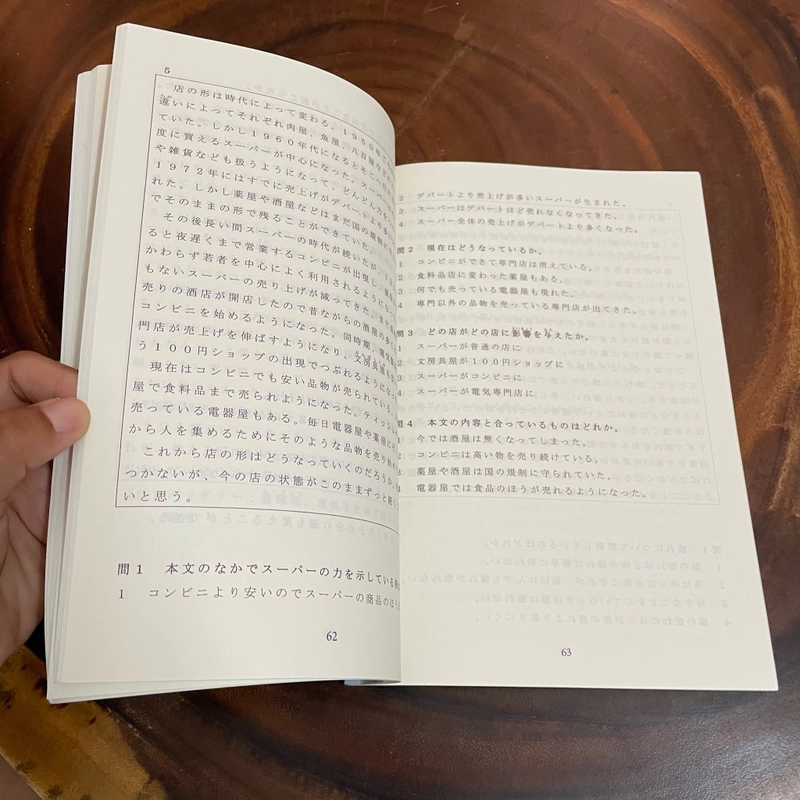 5
店の形は時代によって変わる。1950年
違いによってそれぞれ肉屋、魚屋、八百屋など
ていた。しかし1960年代になるとそこへ
度に買えるスーパーが中心になった。スーパー
や雑貨なども扱うようになって、どんどん力を
1972年にはすでに売上げがデパートより多
れた。しかし薬屋や酒屋などはまだ国の規制が
でそのままの形で残ることができていた。
その後長い間スーパーの時代が続いたが、
ると夜遅くまで営業するコンビニが出現し、
かわらず若者を中心によく利用されるようにな
もないスーパーの売り上げが減ってきた。また
売りの酒店が開店したので昔ながらの酒屋の多
コンビニを始めるようになった。同時期、電気
門店が売上げを伸ばすようになり、文房具屋も
う100円ショップの出現でつぶれるようにな
現在はコンビニでも安い品物が売られている。
屋で食料品まで売られようになった。ティッシュ
売っている電器屋もある。毎日電器屋や薬屋に
から人を集めるためにそのような品物を売り始
これから店の形はどうなっていくのだろうか。
つかないが、今の店の状態がこのままずっと続く
いと思う。
問1 本文のなかでスーパーの力を示している例
1 コンビニより安いのでスーパーの商品のほう
62
2 デパートより売上げが多いスーパーが生まれた。
3 スーパーはデパートほど売れなくなってきた。
4 スーパー全体の売上げがデパートより多くなった。
問2 現在はどうなっているか。
1 コンビニができて専門店は消えている。
2 食料品店に変わった薬屋もある。
3 何でも売っている電器屋も現れた。
4 専門以外の品物を売っている専門店が出てきた。
問3 どの店がどの店に影響を与えたか。
1 スーパーが普通の店に
2 文房具屋が100円ショップに
3 スーパーがコンビニに
4 スーパーが電気専門店に
問4 本文の内容と合っているものはどれか。
1 今では酒屋は無くなってしまった。
2 コンビニは高い物を売り続けている。
3 薬屋や酒屋は国の規制に守られていた。
4 電器屋では食品のほうが売れるようになった。
63